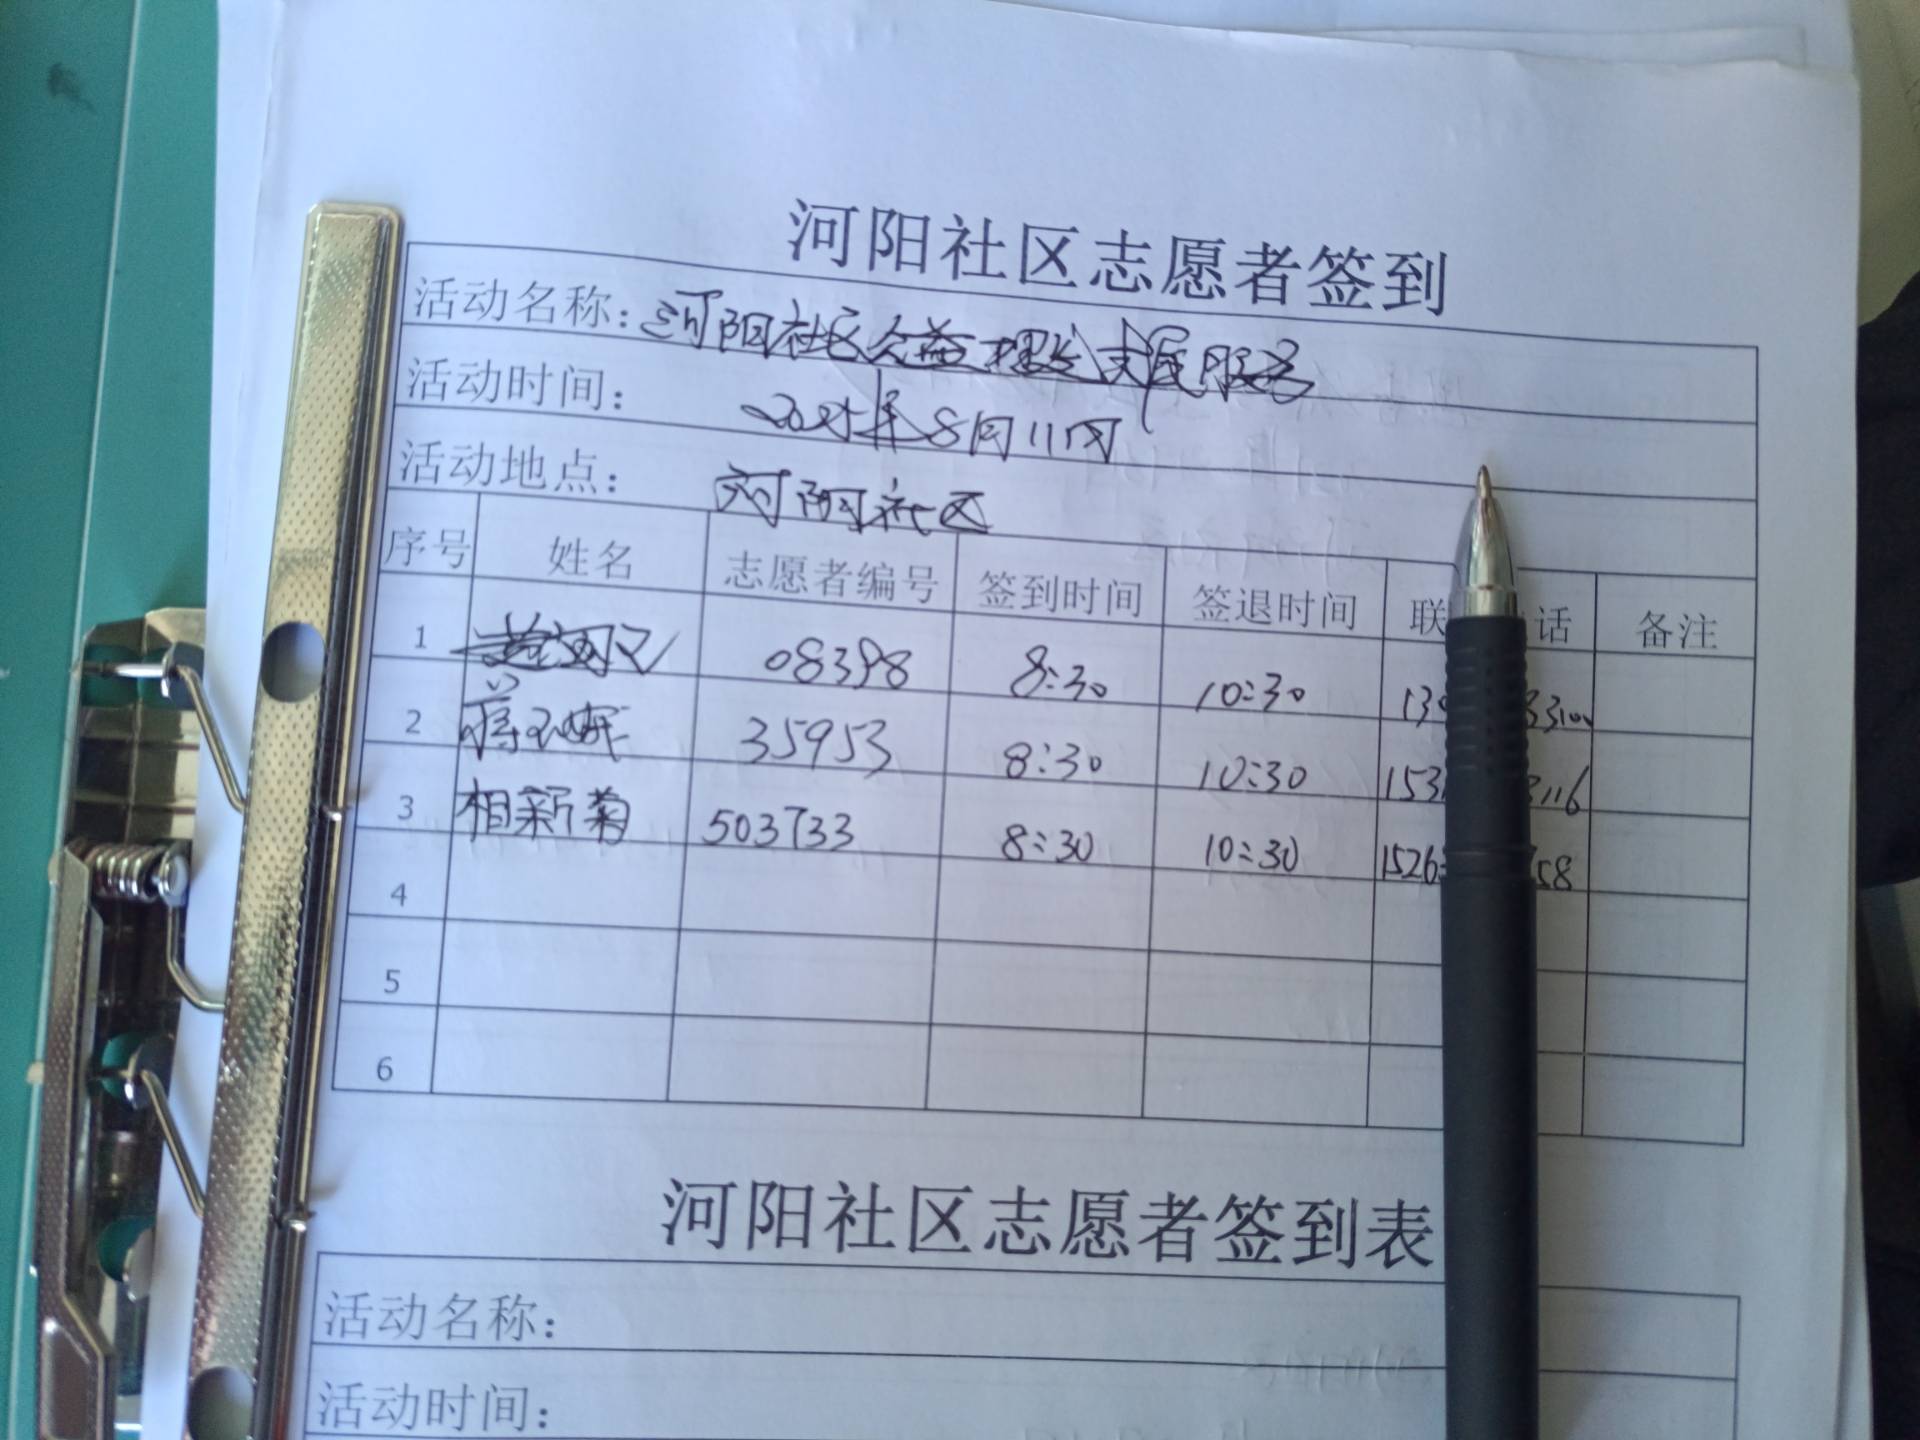 河阳社区志愿者签到
活动名称：河阳社区公益理发惠民服务
活动时间： 2025年8月11日
活动地点： 河阳社区
序号 姓名 志愿者编号 签到时间 签退时间 联 话 备注
1 08398 8:30 10:30
2 蒋 35953 8:30 10:30 153 3116
3 相新菊 503733 8:30 10:30 1526 58
4
5
6
河阳社区志愿者签到表
活动名称：
活动时间：